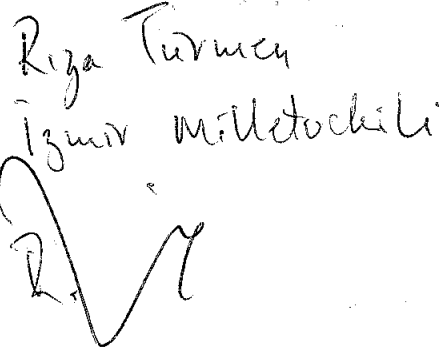 Rıza Türmen
İzmir Milletvekili
R.